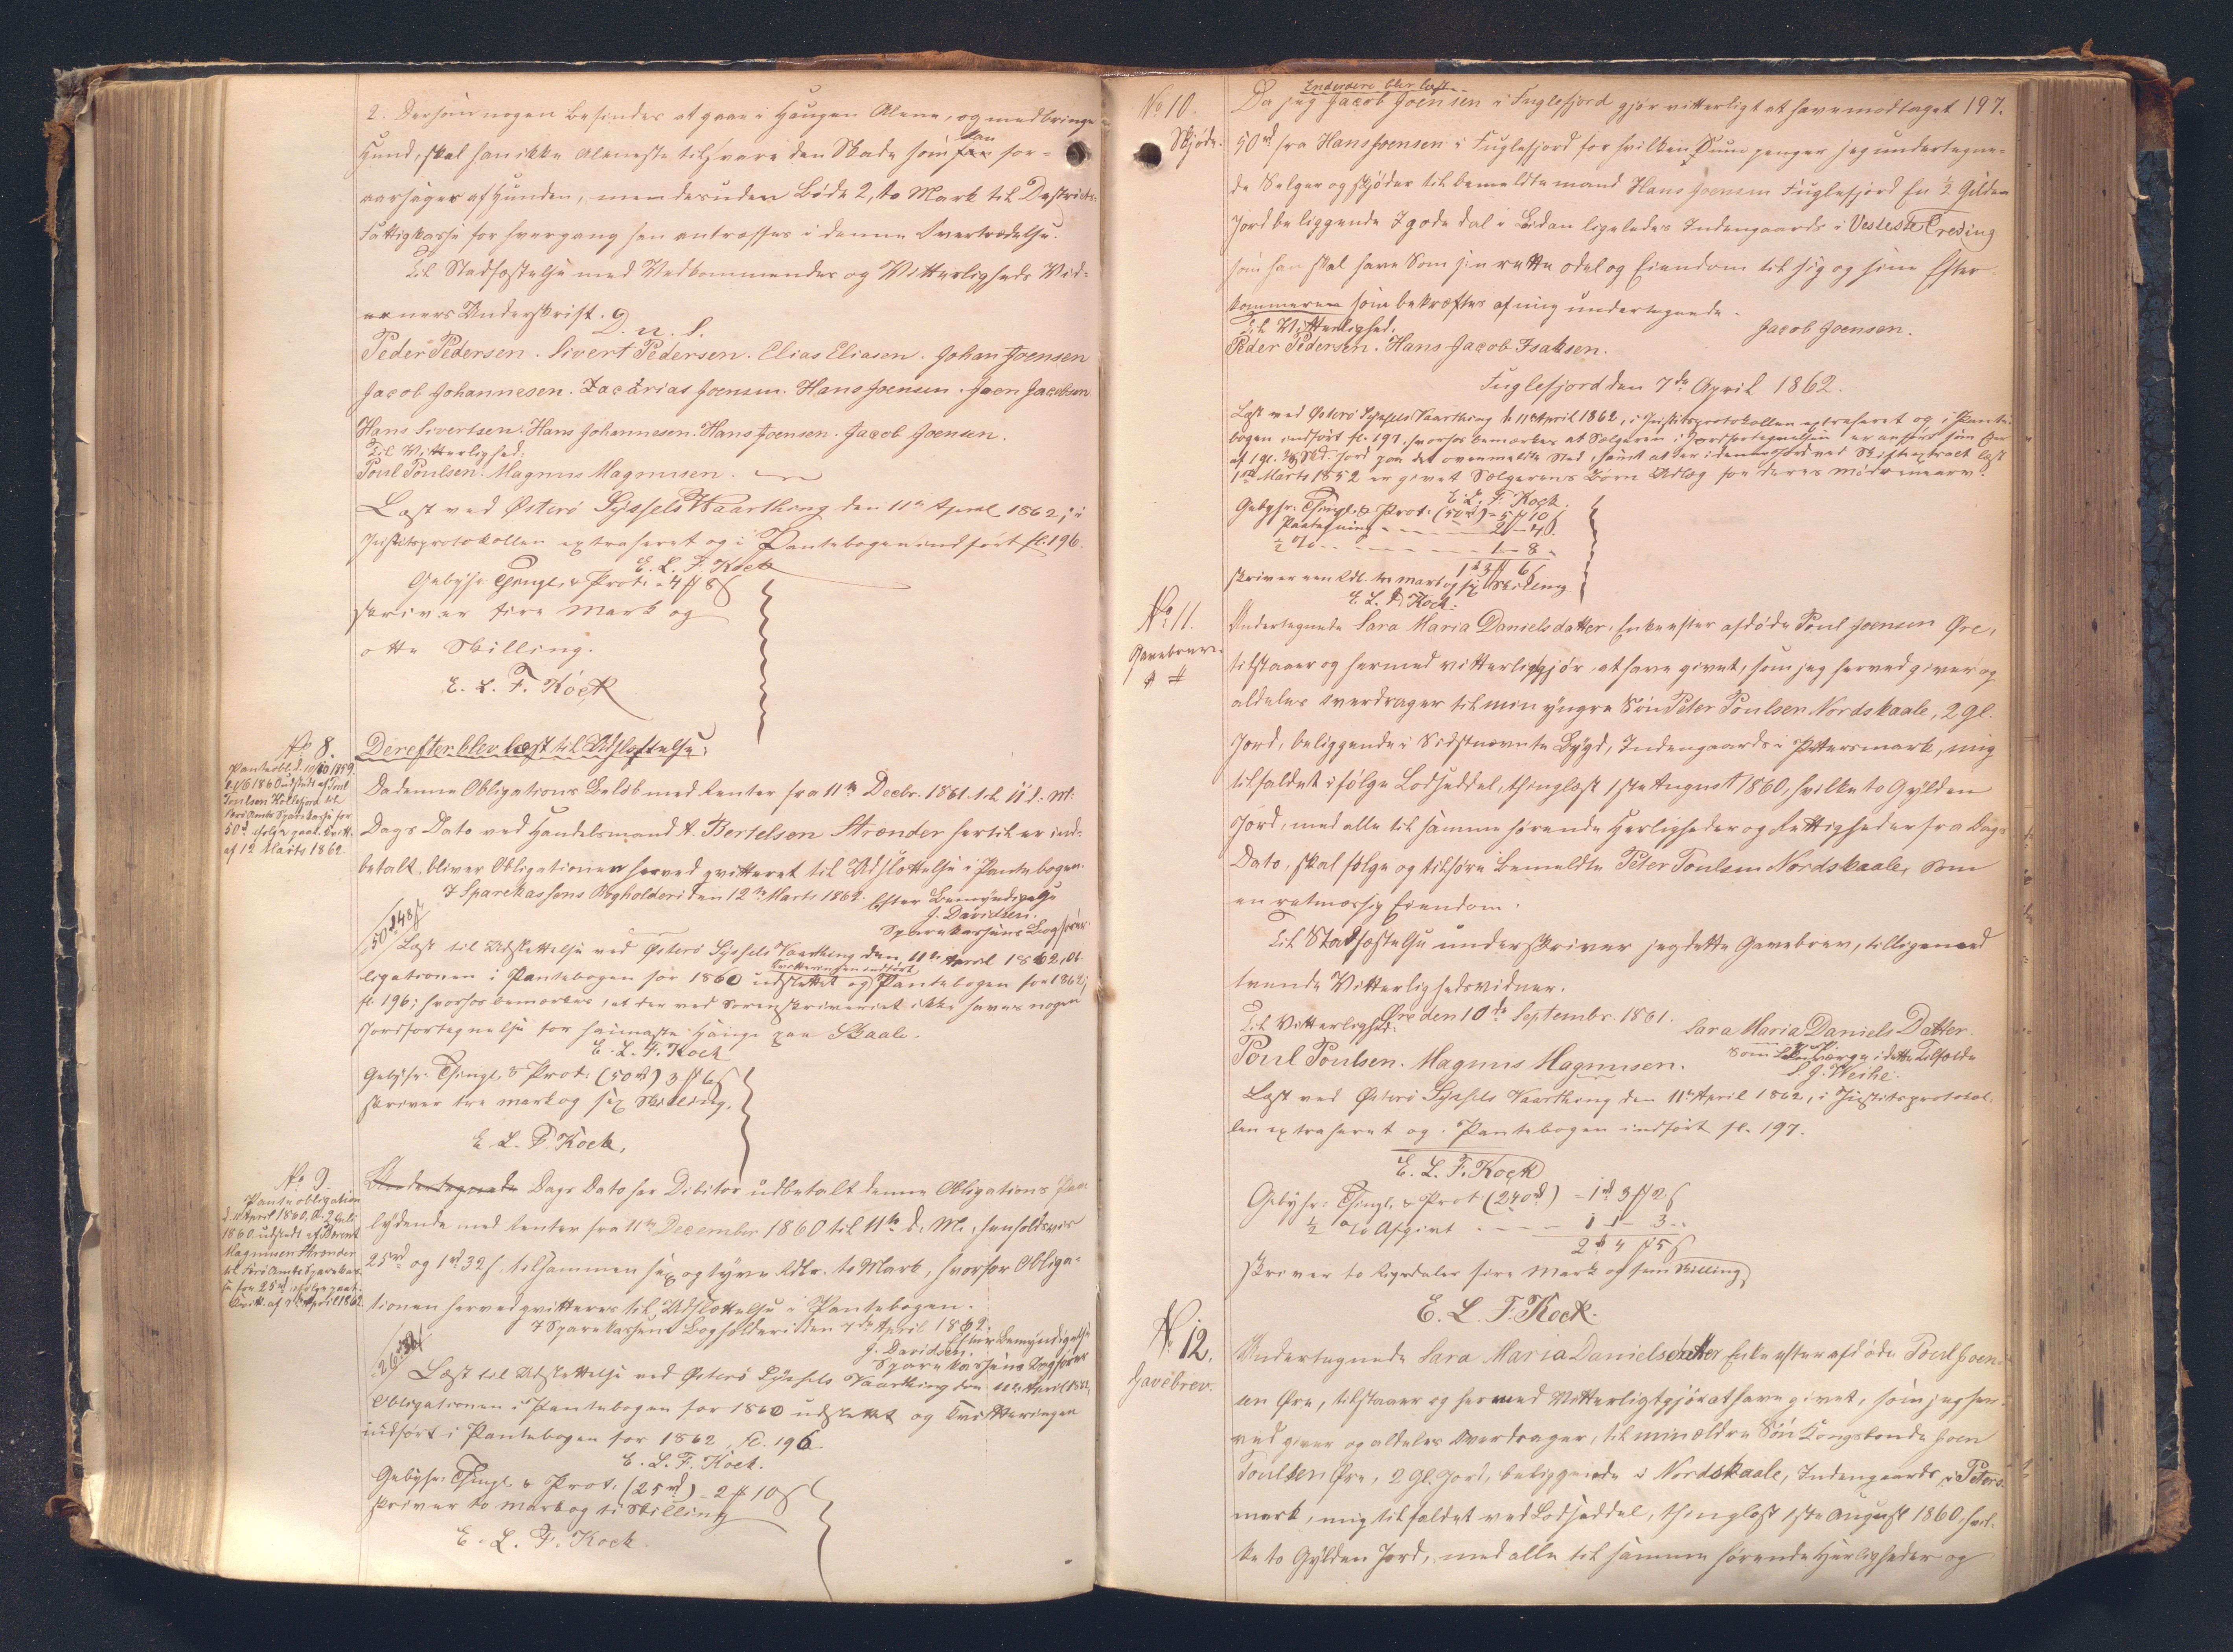 2. Dersom nogen befindes at gaae i Haugen Alene, og medbringe
Hund, skal han ikke aleneste tilsvare den Skade som kan for-
aarsages af Hunden, men desuden bøde 2, to Mark til Districtes
Fattigkasse for hvergang han antræffes i denne Overtrædelse.
Til Stadfæstelse med Vedkommendes og Vitterligheds Vid-
ners Underskrift. D. u. s.
Peder Pedersen. Sivert Pedersen. Elias Eliasen. Johan Joensen
Jacob Johannesen. Zacarias Joensen. Hans Joensen. Joen Jacobsen
Hans Sivertsen. Hans Johannesen. Hans Joensen. Jacob Joensen.
Til Vitterlighed:
Poul Poulsen. Magnus Magnusen.
Læst ved Østerø Syssels Vaarthing den 11te April 1862; i
Justitsprotokollen extraheret og i Pantebogen indført fl. 196.
E. L. F. Kock
Gebyhr Thingl. & Prot. 4 # 8 ß
skriver fire Mark og
otte Skilling.
E. L. F. Kock
No 8.
Panteobl. d. 10/10 1859.
l. 1/6 1860 udstedt af Poul
Poulsen Kollefjord til
Færø Amts Sparekasse for
50 rd ifølge paat. Kvitt.
af 12 Marts 1862.
Derefter blev læst til Udslettelse:
Da denne Obligations Beløb med Renter fra 11te Decbr. 1861 til 11 d. M.
Dags Dato ved Handelsmand A. Bertelsen Strænder hertil er ind-
betalt, bliver Obligationen herved qvitteret til Udslettelse i Pantebogen.
I Sparekassens Bogholderi den 12te Marts 1862. Efter Bemyndigelse
J. Davidsen.
Sparekassens Bogfører
Læst til Udslettelse ved Østerø Syssels Vaarthing den 11te April 1862, Ob-
Kvitteringen indført
ligationen i Pantebogen for 1860 udslettet og Pantebogen for 1862,
fl. 196; hvorhos bemærkes, at der ved Sorenskriveriet ikke haves nogen
Jordfortegnelse for paa Skaale.
E. L. F. Kock
Gebyhr: Thingl. & Prot. (50 rd) 3 # 6 ß
skriver tre mark og sex Skilling.
E. L. F. Kock.
No 9.
Panteobligation
d. 11 April 1860, l. 2 Juli
1860 udstedt af Berent
Magnusen Strænder
til Færø Amts Sparekas-
se for 25 rd ifølge paat.
Kvitt. af 7de April 1862.
Undertegnede Dags Dato har Debitor udbetalt denne Obligations Paa-
lydende med Renter fra 11te December 1860 til 11te d. M., henholdsvis
25 rd og 1 rd 32 ß, tilsammen sex og tyve Rdlr. to Mark, hvorfor Obliga-
tionen herved qvitteres til Udslettelse i Pantebogen.
I Sparekassens Bogholderi den 7de April 1862.
Efter Bemyndigelse
J. Davidsen.
Sparekassens Bogfører
Læst til Udslettelse ved Østerø Syssels Vaarthing den 11te April 1862,
Obligationen i Pantebogen for 1860 udslettet og Kvitteringen
indført i Pantebogen for 1862 fl. 196
E. L. F. Kock.
Gebyhr: Thingl. & Prot. (25 rd) 2 # 10 ß
skriver to mark og ti Skilling
E. L. F. Kock.
Endvidere blev læst
No 10.
Skjøde.
Da jeg Jacob Joensen i Fuglefjord gjør vitterligt at have modtaget 197.
50 rd fra Hans Joensen i Fuglefjord for hvilken Sum penger jeg undertegne-
de Selger og skjøder til bemeldte mand Hans Joensen Fuglefjord En ½ Gilden
Jord beliggende I gode dal i Lidan ligeledes Indengaards i Vesteste Treding
som han skal have Som sin rette odel og Eiendom til sig og sine Efter
kommerene som bekræftes af mig undertegnede.
Til Vitterlighed.
Jacob Joensen.
Peder Pedersen. Hans Jacob Isaksen.
Fuglefjord den 7de April 1862.
Læst ved Østerø Syssels Vaarthing d. 11 April 1862, i Justitsprotokollen extraheret og i Pante-
bogen indført fl. 197. hvorhos bemærkes at Sælgeren i Jordfortegnelsen er anført som Eier
af 1 gl. Jord paa det ovenmeldte Sted, samt at der i denne Jord ved Skifteextract læst
1ste Marts 1852 er givet Sælgerens Børn Udlæg for deres mødrenearv.
E. L. F. Kock.
Gebyhr: Thingl. & Prot. (50 rd) - 5 # 10 ß
Paategning - - - 2 - 4 ß
½ % - - - - 1 - 8 -
1 rd 3 # 6 ß
skriver een Rdl. tre mark og sex Skilling
E. L. F. Kock.
No 11.
Gavebrev.
Undertegnede Sara Maria Danielsdatter, Enke efter afdøde Poul Joensen Øre,
tilstaaer og hermed vitterliggjør at have givet, som jeg herved giver og
aldeles overdrager til min yngre Søn Peter Poulsen Nordskaale, 2 gl.
Jord, beliggende i Sidstnævnte Bygd, Indengaards i Pettersmark, mig
tilfaldet ifølge Lodseddel, thinglæst 1ste August 1860, hvilke to Gylden
Jord, med alle til samme hørende Herligheder og Rettigheder fra Dags
Dato, skal følge og tilhøre bemeldte Peter Poulsen Nordskaale, som
en retmæssig Eiendom.
Til Stadfæstelse underskriver jeg dette Gavebrev, tilligemed
tvende Vitterlighedsvidner.
Øre den 10de Septembr. 1861.
Til Vitterlighed:
Sara Maria Daniels Datter.
Poul Poulsen. Magnus Magnusen.
Som Laugværge i dette Tilfælde
S. J. Weihe.
Læst ved Østerø Syssels Vaarthing den 11te April 1862, i Justitsprotokol-
len extraheret og i Pantebogen indført fl. 197.
E. L. F. Kock
Gebyhr: Thingl. & Prot. (240 rd) = 1 rd 3 # 2 ß
½ % Afgivt - - - - 1 - 1 - 3 -
2 rd 4 # 5 ß
skriver to Rigsdaler fire Mark og fem Skilling
E. L. F. Kock.
No 12.
Gavebrev.
Undertegnede Sara Maria Danielsdatter Enke efter afdøde Poul Joens-
en Øre, tilstaaer og hermed Vitterligtgjør at have givet, som jeg her-
ved giver og aldeles Overdrager, til min ældre Søn Kongsbonde Joen
Poulsen Øre, 2 Gl. Jord, beliggende i Nordskaale, Indengaards, i Peters-
mark, mig tilfaldet ved Lodseddel, thinglæst 1ste August 1860, hvil-
ke to Gylden Jord, med alle til samme hørende Herligheder og